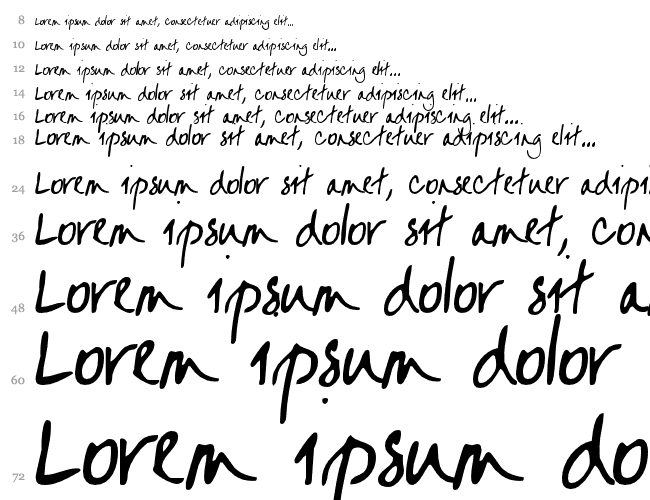 8 Lorem ipsum dolor sit amet, consectetuer adipiscing elit...
10 Lorem ipsum dolor sit amet, consectetuer adipiscing elit...
12 Lorem ipsum dolor sit amet, consectetuer adipiscing elit...
14 Lorem ipsum dolor sit amet, consectetuer adipiscing elit...
16 Lorem ipsum dolor sit amet, consectetuer adipiscing elit...
18 Lorem ipsum dolor sit amet, consectetuer adipiscing elit...
24 Lorem ipsum dolor sit amet, consectetuer adipi
36 Lorem ipsum dolor sit amet, con
48 Lorem ipsum dolor sit a
60 Lorem ipsum dolor
72 Lorem ipsum do